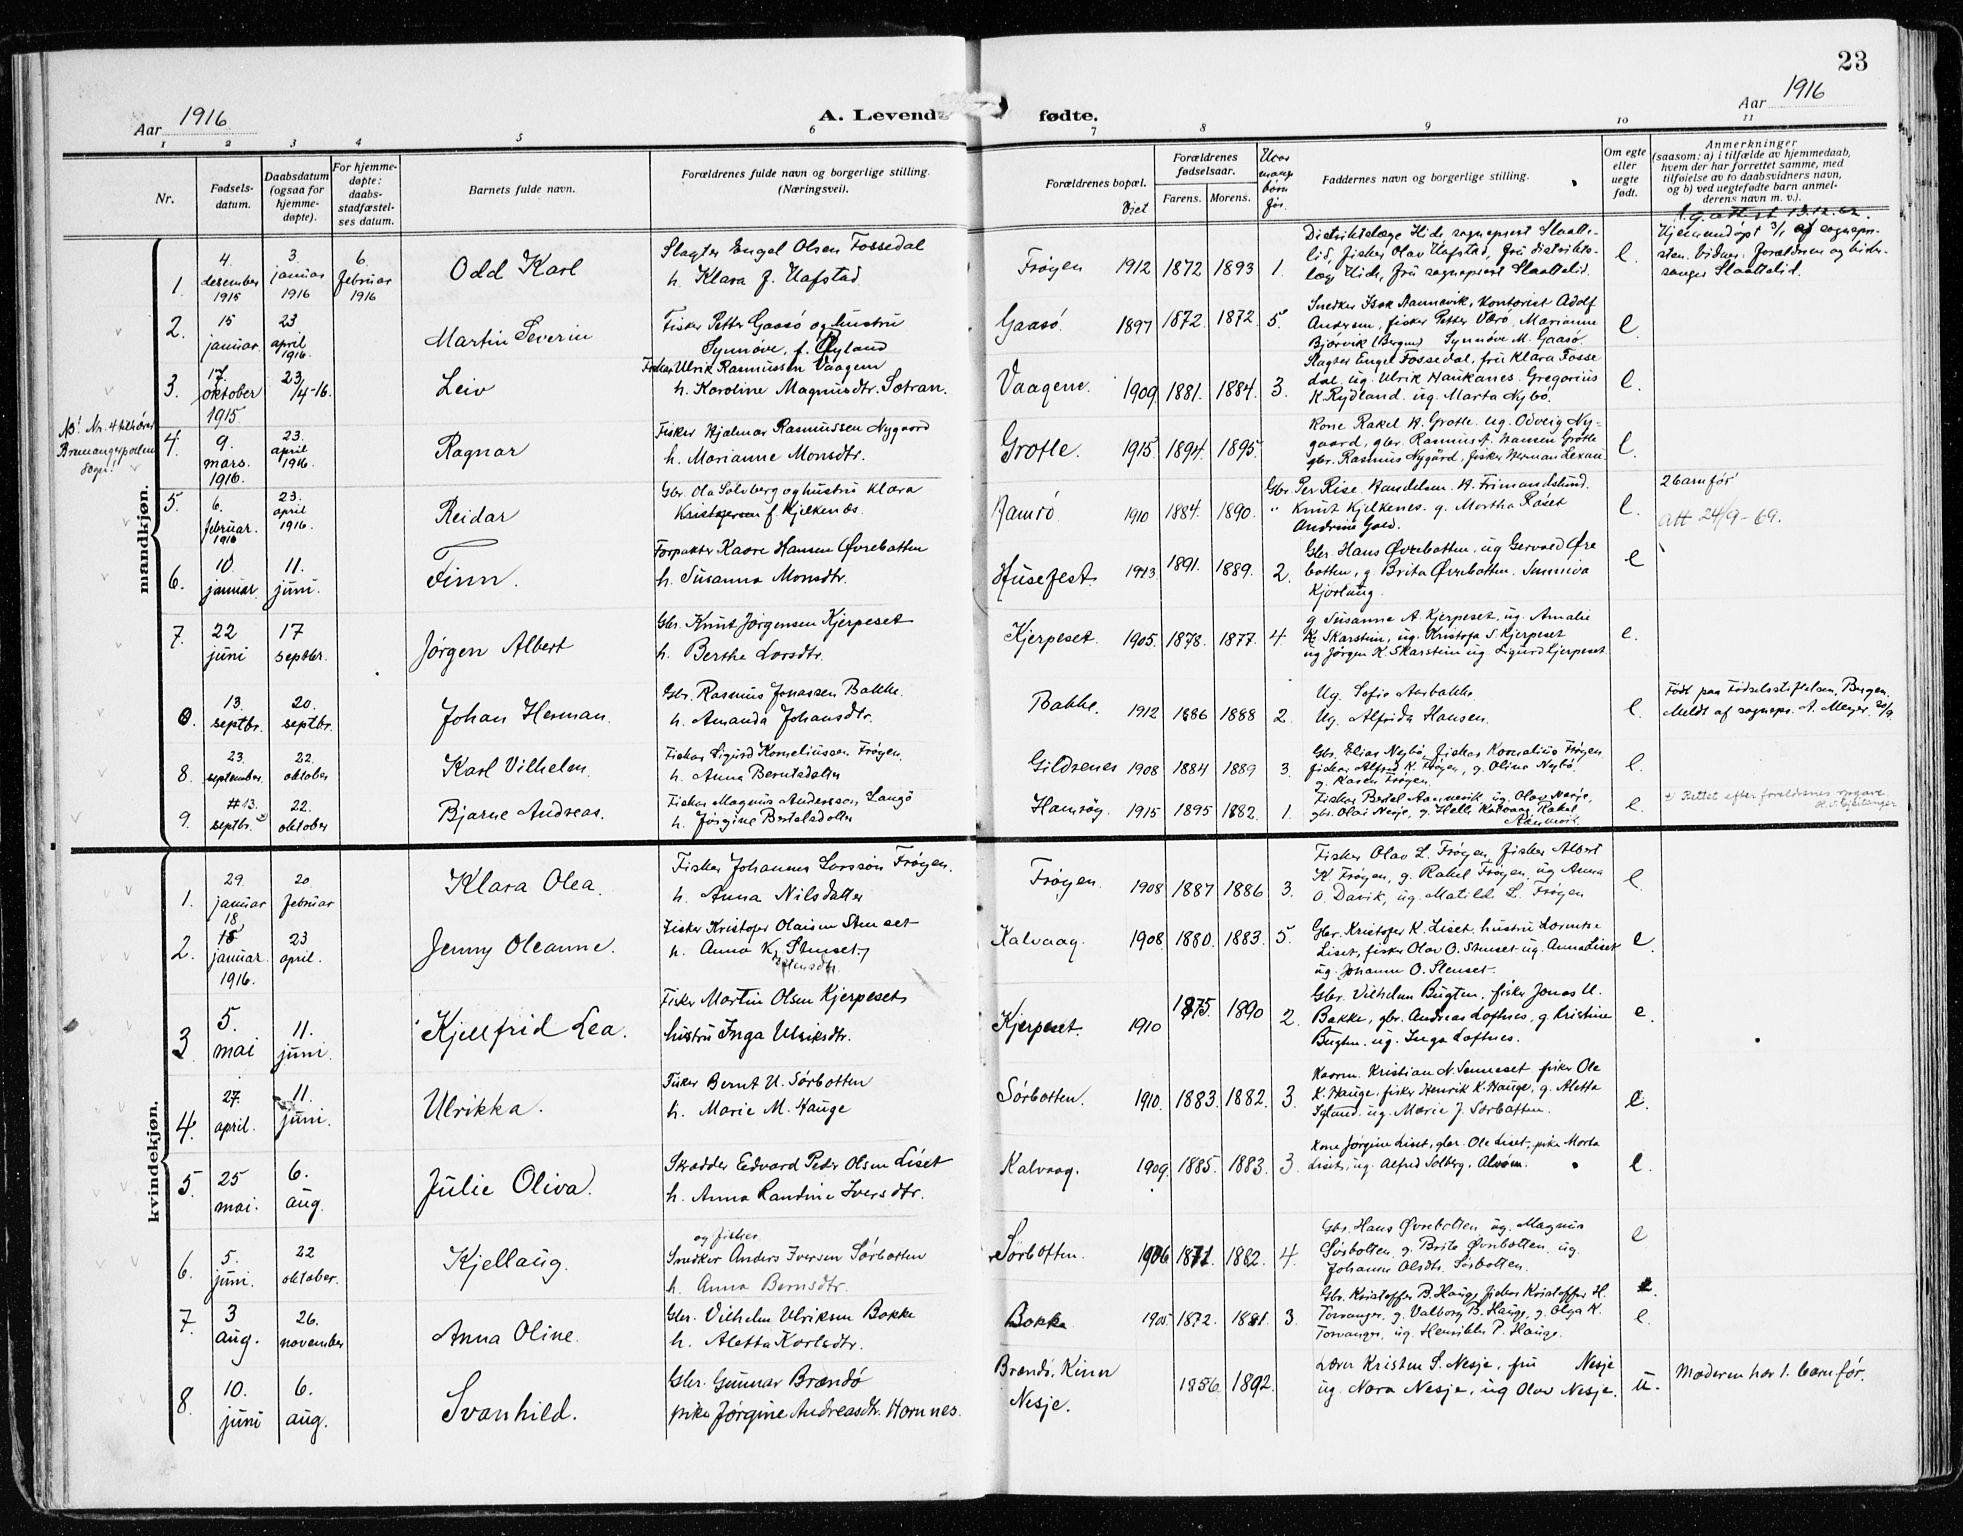 23
Aar 1916
A. Levende fødte.
Aar 1916
1 2 3 4 5 6 7 8 9 10 11
Nr.
Fødsels-
datum.
Daabsdatum
(ogsaa for
hjemme-
døpte).
For hjemme-
døpte:
daabs-
stadfæstel-
ses datum.
Barnets fulde navn.
Forældrenes fulde navn og borgerlige stilling.
(Næringsvei).
Forældrenes bopæl.
Viet
Forældrenes
fødselsaar.
Farens. Morens.
Hvor
mange
børn
før.
Faddernes navn og borgerlige stilling.
Om egte
eller
uegte
født.
Anmerkninger
(saasom: a) i tilfælde av hjemmedaab,
hvem der har forrettet samme, med
tilføielse av to daabsvidners navn,
og b) ved uegtefødte barn anmel-
derens navn m. v.).
mandkjøn.
1. 4. desember 1915 3. januar 1916 6. februar 1916 Odd Karl
Slagter Engel Olsen Fossedal
h. Klara J. Hafstad.
Frøyen 1912 1872 1893 1.
Distriktslæge Hide, sogneprest Slaatte-
lid, fisker Olav Hafstad, fru distrikts-
læge Hide, fru sogneprest Slaattelid.
e.
Hjemmedøpt 3/1 af sognepre-
sten. Vidner: Forældrene og
Slaattelid.
2. 15 januar. 23 april 1916. Martin Severin
Fisker Petter Gaasø og hustru
Synnøve, f. Øyland
Gaasø. 1897 1872. 1872. 5.
Snedker Isak Nannavik, kontorist Adolf
Andersen, fisker Petter Værø, Marianne
Bjørvik (Bergen) Synnøve M. Gaasø.
e.
3. 17. oktober 1915 23/4-16. Leiv
Fisker Ulrik Rasmussen Vaagene
h. Karoline Magnusdtr. Sotran.
Vaagene. 1909 1881. 1884. 3.
Slagter Engel Fossedal, fru Klara Fosse
dal, ug. Ulrik Haukanes. Gregorius
K. Rydland. ug. Marta Nybø.
e.
NB! Nr. 4 tilhører
Bremangerpollen
sogn!
4. 9. mars. 1916. 23. april 1916. Ragnar
Fisker Hjalmar Rasmussen Nygaard
h. Marianne Monsdtr.
Grotle. 1915. 1894. 1895.
Kone Rakel H. Grotle. ug. Odveig Ny-
gaard, gbr. Rasmus J. Hansen Grotle
gbr. Rasmus Nygård, fisker Herman Lexau.
e.
5. 6. februar. 1916 23. april 1916. Reidar
Gbr. Ola Solvberg og hustru Klara
Kristofersen f. Kjelkenæs.
1910 1884. 1890.
Gbr. Per Rise. Handelsm. H. Frimandslund.
" Knut Kjelkenes. g. Martha Røset
Andrine Goed.
e.
2 barn før
att 24/9-69.
6. 10. januar. 11. juni. Finn.
Forpakter Kaare Hansen Øvrebotten
h. Susanna Monsdtr.
Husefest 1913 1891. 1889. 2.
Gbr. Hans Øvrebotten, ug Gervald Øvre
botten, g. Brita Øvrebotten. Sunniva
Kjørlaug.
e
7. 22 juni 17 septbr. Jørgen Albert
Gbr. Knut Jørgensen Kjerpeset
h. Berthe Larsdtr.
Kjerpeset. 1905. 1878. 1877. 4
g Susanne A. Kjerpeset, ug. Amalie
K. Skarstein, ug. Kristofa S. Kjerpeset
ug Jørgen K. Skarstein ug. Sigurd Kjerpeset.
e.
13. septbr. 20. septbr. Johan Herman.
Gbr. Rasmus Jonassen Bakke.
h. Amanda Johansdtr.
Bakke. 1912 1886 1888 2
Ug. Sofie Aarbakke
Ug. Alfrida Hansen.
e.
Født paa Fødselsstiftelsen, Bergen.
Meldt af sognepr. A. Meyer 20/9
8. 23. september. 22. oktober Karl Vilhelm.
Fisker Sigurd Korneliussen Frøyen.
h. Anna Berntsdatter
Gildrenes 1908 1884 1889 3.
Gbr. Elias Nesbø, fisker Kornelius Frøyen
fisker Alfred K. Frøyen, g. Olina Nybø,
g. Karen Frøyen
e.
9. 13. septbr. 22. oktober Bjarne Andreas.
Fisker Magnus Anderssen Langø
h. Jørgine Bertelsdatter
Hamrøy 1915 1895 1882. 1.
Fisker Bertel Aannevik, ug. Olav Nesje,
gbr. Olai Nesje, g. Helle Kalvaag, Rakel
Aannevik.
e.
x) Rettet efter forældrenes opgave
kvindekjøn.
1. 29. januar 20 februar Klara Olea.
Fisker Johannes Larssøn Frøyen.
h. Anna Nilsdatter
Frøyen. 1908 1887 1886 3.
Fisker Olav L. Frøyen, fisker Albert
K. Frøyen, g. Rakel Frøyen, ug Anna
O. Davik, ug. Matilde L. Frøyen
e.
2. 18 januar. 1916. 23 april. Jenny Oleanne.
Fisker Kristofer Olaisen Stenset
h. Anna K. Stenset,
Kalvaag. 1908 1880. 1883. 5.
Gbr. Kristofer K. Liset, hustru Lorentse
Liset, fisker Olav O. Stenset. ug. Anna Liset
ug. Johanne O. Stenset.
e.
3 5. mai 11. juni. Kjellfrid Lea.
Fisker Martin Olsen Kjerpeset
hustru Inga Ulriksdtr.
Kjerpeset. 1910 1875. 1890 2.
Gbr. Vilhelm Bugten, fisker Jonas U.
Bakke, gbr. Andreas Loftnes, g. Kristine
Bugten. ug. Inga Loftnes.
e.
4. 27. april. 11. juni. Ulrikka.
Fisker Bernt U. Sørbotten
h. Marie M. Hauge
Sørbotten. 1910. 1883. 1882. 3.
Kaarm. Kristian N. Senneset. fisker Ole
K. Hauge, fisker Henrik K. Hauge, g. Aletta
Igland. ug. Marie J. Sørbotten.
e.
5. 25 mai. 6. aug. Julie Oliva.
Skodder Edvard Peder Olsen Liset
h. Anna Randine Iversdtr.
Kalvaag. 1909. 1885. 1883. 3.
Kone Jørgine Liset, gbr. Ole Liset, pike Marta
Liset, ug. Alfred Solberg, Alvøen.
e.
6. 5. juni. 22 oktober. Kjellaug.
og fisker
Snedker Anders Iversen Sørbotten
h. Anna Berntsdtr.
Sørbotten. 1906 1871. 1882. 4
Gbr. Hans Øvrebotten, ug. Magnus
Sørbotten, g. Brita Øvrebotten, ug.
Johanne Olsdtr. Sørbotten.
e
7. 3 aug. 26. november Anna Oline.
Gbr. Vilhelm Ulriksen Bakke
h. Aletta Karlsdtr.
Bakke 1905 1872. 1881. 3.
Gbr. Kristoffer B. Hauge, fisker Kristoffer H.
Torvanger, g. Valborg B. Hauge, g. Olga K.
Torvanger, ug. Henrikke P. Hauge.
e.
8. 10. juni 6. aug. Svanhild.
Gbr. Gunnar Brændø
pike Jørgine Andreasdtr. Hornnes.
Brændø, Kinn
Nesje.
1856. 1892.
Lærer Kristen S. Nesje, fru Nesje
ug. Nora Nesje, ug Olav Nesje.
u.
Moderen har 1. barn før.